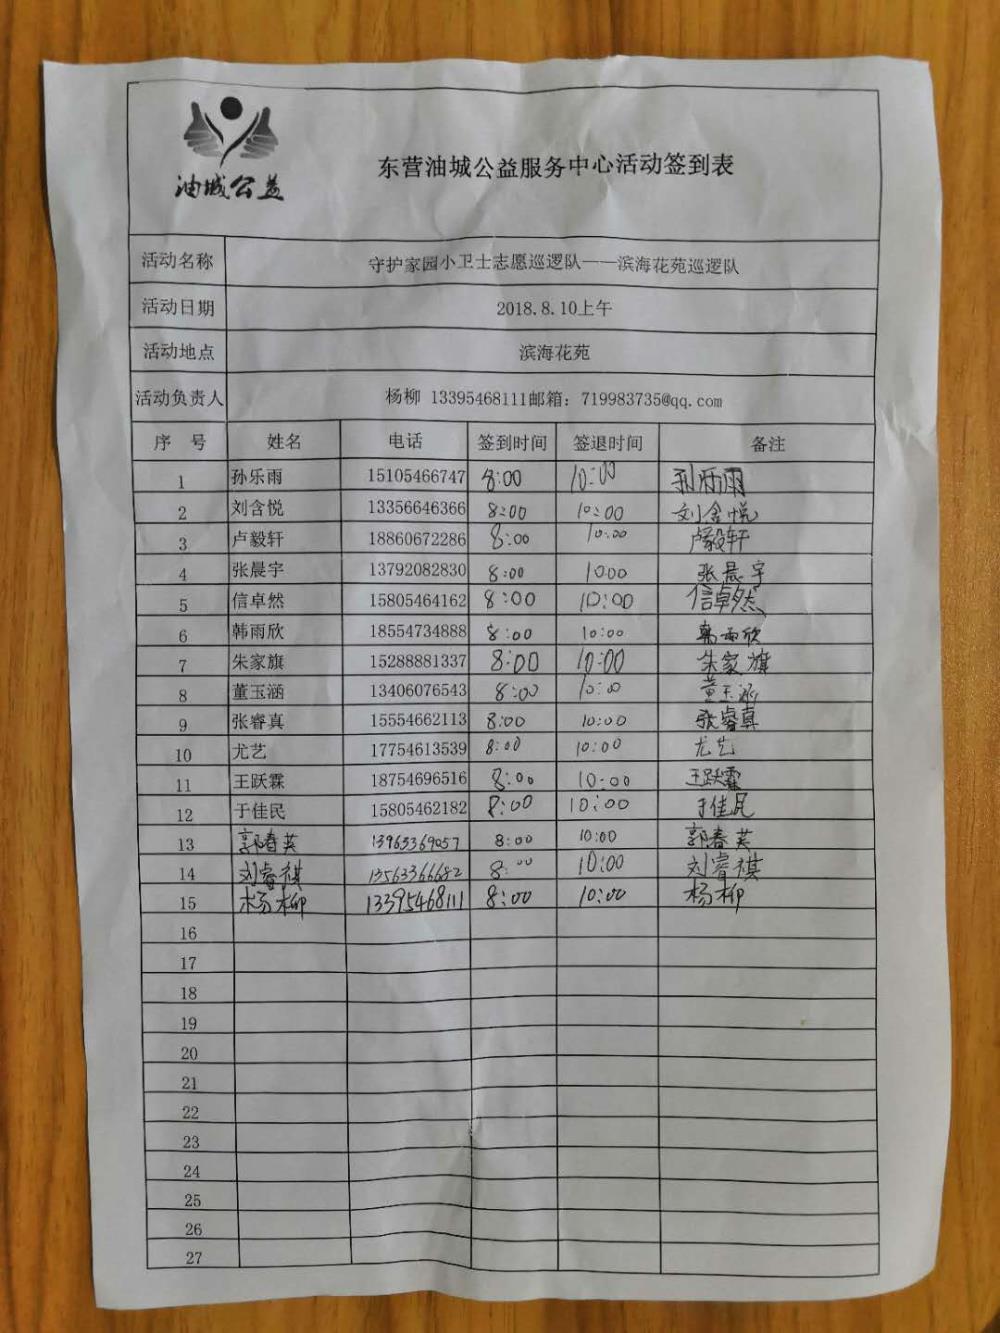 油城公益
东营油城公益服务中心活动签到表
活动名称 守护家园小卫士志愿巡逻队——滨海花苑巡逻队
活动日期 2018.8.10上午
活动地点 滨海花苑
活动负责人 杨柳 13395468111邮箱：719983735@qq.com
序 号 姓名 电话 签到时间 签退时间 备注
1 孙乐雨 15105466747 8:00 10:00 孙乐雨
2 刘含悦 13356646366 8:00 10:00 刘含悦
3 卢毅轩 18860672286 8:00 10:00 卢毅轩
4 张晨宇 13792082830 8:00 1000 张晨宇
5 信卓然 15805464162 8:00 10:00 信卓然
6 韩雨欣 18554734888 8:00 10:00 韩雨欣
7 朱家旗 15288881337 8:00 10:00 朱家旗
8 董玉涵 13406076543 8:00 10:00 董玉涵
9 张睿真 15554662113 8:00 10:00 张睿真
10 尤艺 17754613539 8:00 10:00 尤艺
11 王跃霖 18754696516 8:00 10:00 王跃霖
12 于佳民 15805462182 8:00 10:00 于佳民
13 郭春英 13963369057 8:00 10:00 郭春英
14 刘睿祺 13563366682 8:00 10:00 刘睿祺
15 杨柳 13395468111 8:00 10:00 杨柳
16
17
18
19
20
21
22
23
24
25
26
27